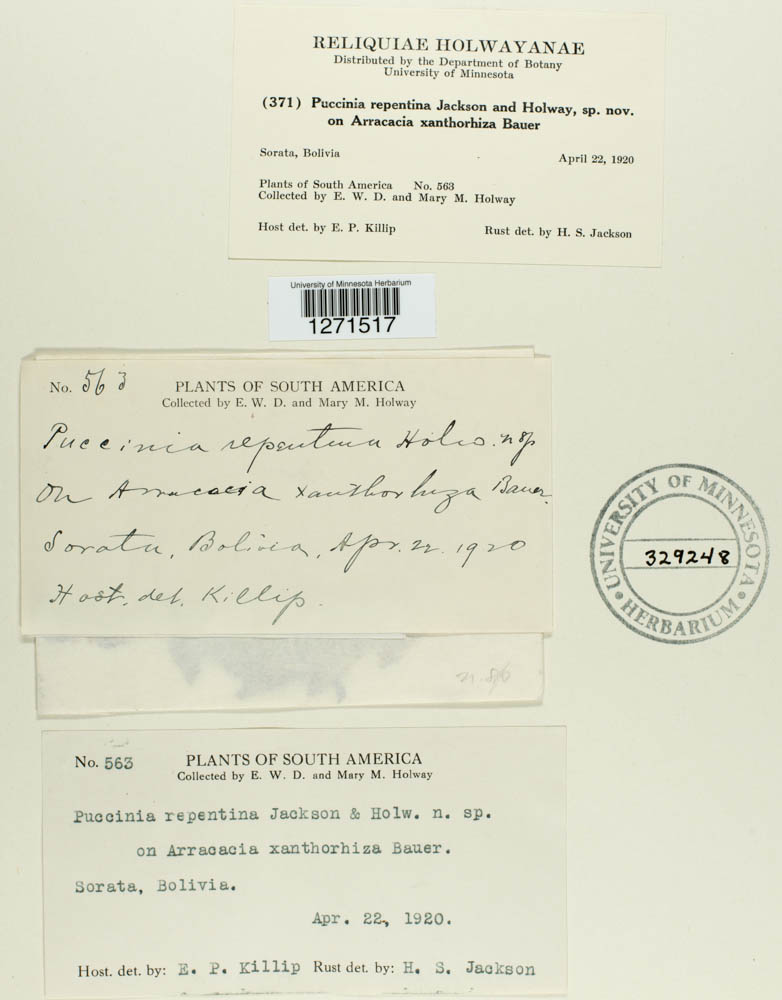 RELIQUIAE HOLWAYANAE
Distributed by the Department of Botany
University of Minnesota
(371) Puccinia repentina Jackson and Holway, sp. nov.
on Arracacia xanthorhiza Bauer
Sorata, Bolivia April 22, 1920
Plants of South America No. 563
Collected by E. W. D. and Mary M. Holway
Host det. by E. P. Killip Rust det. by H. S. Jackson
University of Minnesota Herbarium
1271517
No. 563 PLANTS OF SOUTH AMERICA
Collected by E. W. D. and Mary M. Holway
Puccinia repentina Holw. n sp
On Arracacia xanthorhiza Bauer.
Sorata, Bolivia, Apr. 22. 1920
Host. det. Killip.
UNIVERSITY OF MINNESOTA
329248
HERBARIUM
No. 563 PLANTS OF SOUTH AMERICA
Collected by E. W. D. and Mary M. Holway
Puccinia repentina Jackson & Holw. n. sp.
on Arracacia xanthorhiza Bauer.
Sorata, Bolivia.
Apr. 22, 1920.
Host. det. by: E. P. Killip Rust det. by: H. S. Jackson